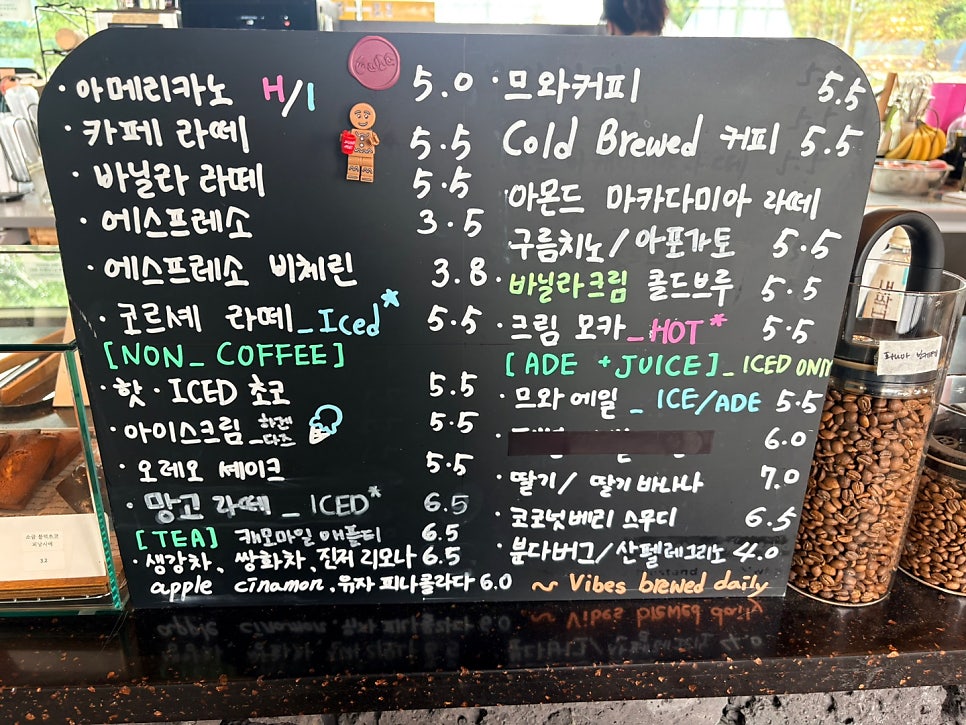 · 아메리카노 H/I 5.0
· 카페 라떼 5.5
· 바닐라 라떼 5.5
· 에스프레소 3.5
· 에스프레소 비체린 3.8
· 코르셰 라떼_Iced* 5.5
[NON_ COFFEE]
핫 · ICED 초코 5.5
· 아이스크림_ 5.5
· 오레오 셰이크 5.5
· 망고 라떼 _ ICED* 6.5
[TEA] 캐모마일 애플티 6.5
· 생강차, 쌍화차, 진저 리모나 6.5
apple cinamon, 유자 피나콜라다 6.0
· 므와커피 5.5
Cold Brewed 커피 5.5
아몬드 마카다미아 라떼
구름치노/아포가토 5.5
· 바닐라크림 콜드브루 5.5
· 크림 모카_HOT* 5.5
[ADE +JUICE]_ICED ONLY
· 므와에일 _ ICE/ADE 5.5
6.0
· 딸기/ 딸기바나나 7.0
· 코코넛베리 스무디 6.5
· 분다버그/산펠레그리노 4.0
~ Vibes brewed daily
3.2